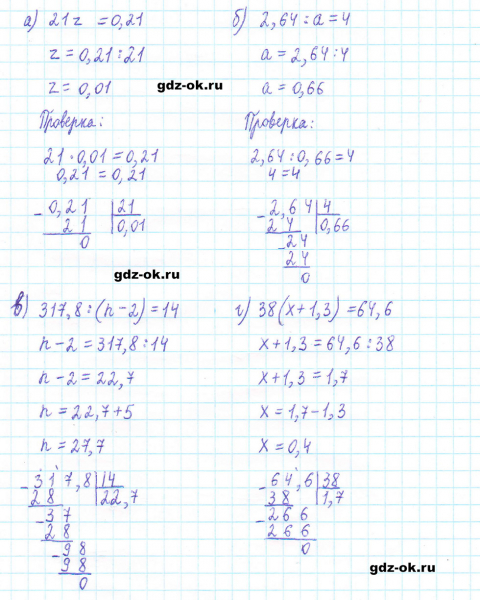 а) 21z = 0,21
z = 0,21 : 21
z = 0,01
Проверка:
21 · 0,01 = 0,21
0,21 = 0,21
- 0,21 | 21
21 | 0,01
0
б) 2,64 : a = 4
a = 2,64 : 4
a = 0,66
gdz-ok.ru
Проверка:
2,64 : 0,66 = 4
4 = 4
- 2,64 | 4
24 | 0,66
- 24
24
0
gdz-ok.ru
в) 317,8 : (n - 2) = 14
n - 2 = 317,8 : 14
n - 2 = 22,7
n = 22,7 + 5
n = 27,7
- 317,8 | 14
28 | 22,7
- 37
28
- 98
98
0
г) 38(x + 1,3) = 64,6
x + 1,3 = 64,6 : 38
x + 1,3 = 1,7
x = 1,7 - 1,3
x = 0,4
- 64,6 | 38
38 | 1,7
- 266
266
0
gdz-ok.ru